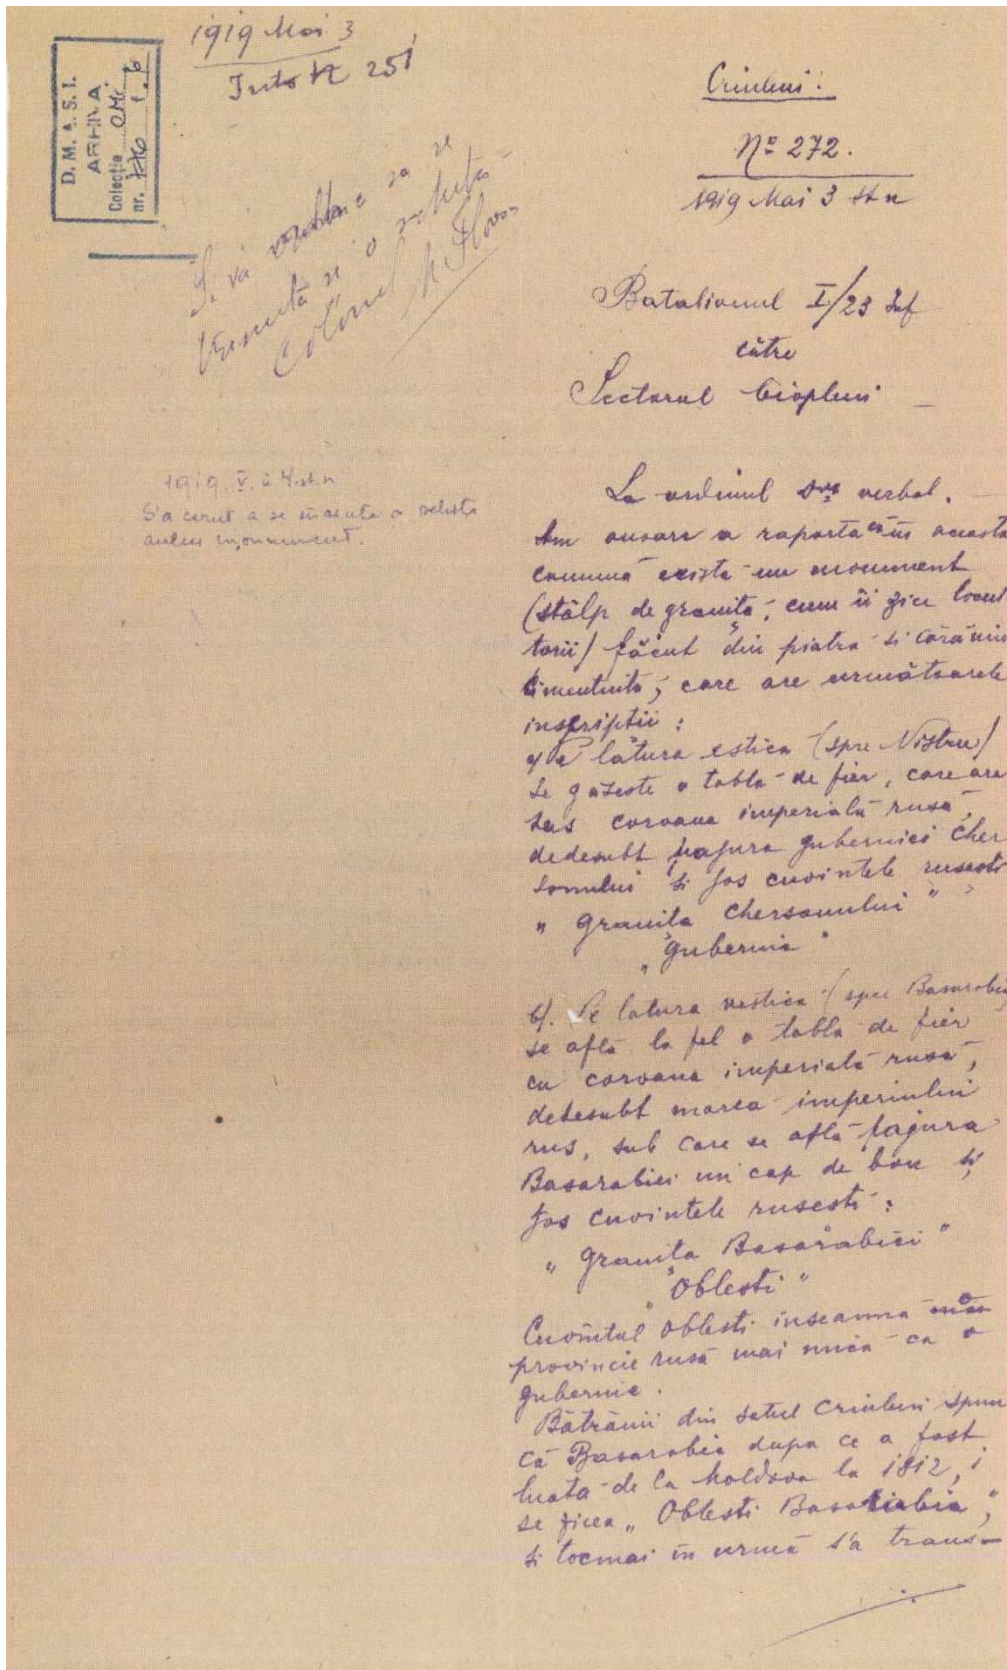 D. M. A. S. I.
ARHIVA
Colecția OMI
nr. f. 6
1919 Mai 3
251
Criuleni:
No 272.
1919 Mai 3 st n
Se va să se
trimită și o schiță
Colonel
Batalionul I/23 Inf
către
Sectorul
1919. V. 4 st. n
S'a cerut a se înainta o schiță
acelui monument.
La ordinul Dvs verbal.
Am onoare a raporta că in aceasta
comună există un monument
(stâlp de graniță, cum îi zice locui
torii) făcut din piatra și cărămidă
cimentuită, care are următoarele
inscripții:
a) Pe latura estica (spre Nistru)
se găsește o tabla de fier, care are
sus coroana imperială rusă,
dedesubt pajura guberniei Cher
sonului și jos cuvintele rusești
„ Granița Chersonului "
„ gubernia "
b). Pe latura vestica (spre Basarabia)
se află la fel o tabla de fier
cu coroana imperială rusă,
dedesubt marca imperiului
rus, sub care se află pajura
Basarabiei un cap de bou și
jos cuvintele rusești:
„ Granița Basarabiei "
„ Oblesti "
Cuvintul Oblesti inseamna o
provincie rusă mai mică ca o
gubernie.
Bătrânii din satul Criuleni spun
că Basarabia dupa ce a fost
luata de la Moldova la 1812, i
se zicea „ Oblesti Basarabia",
și tocmai în urmă s'a trans-